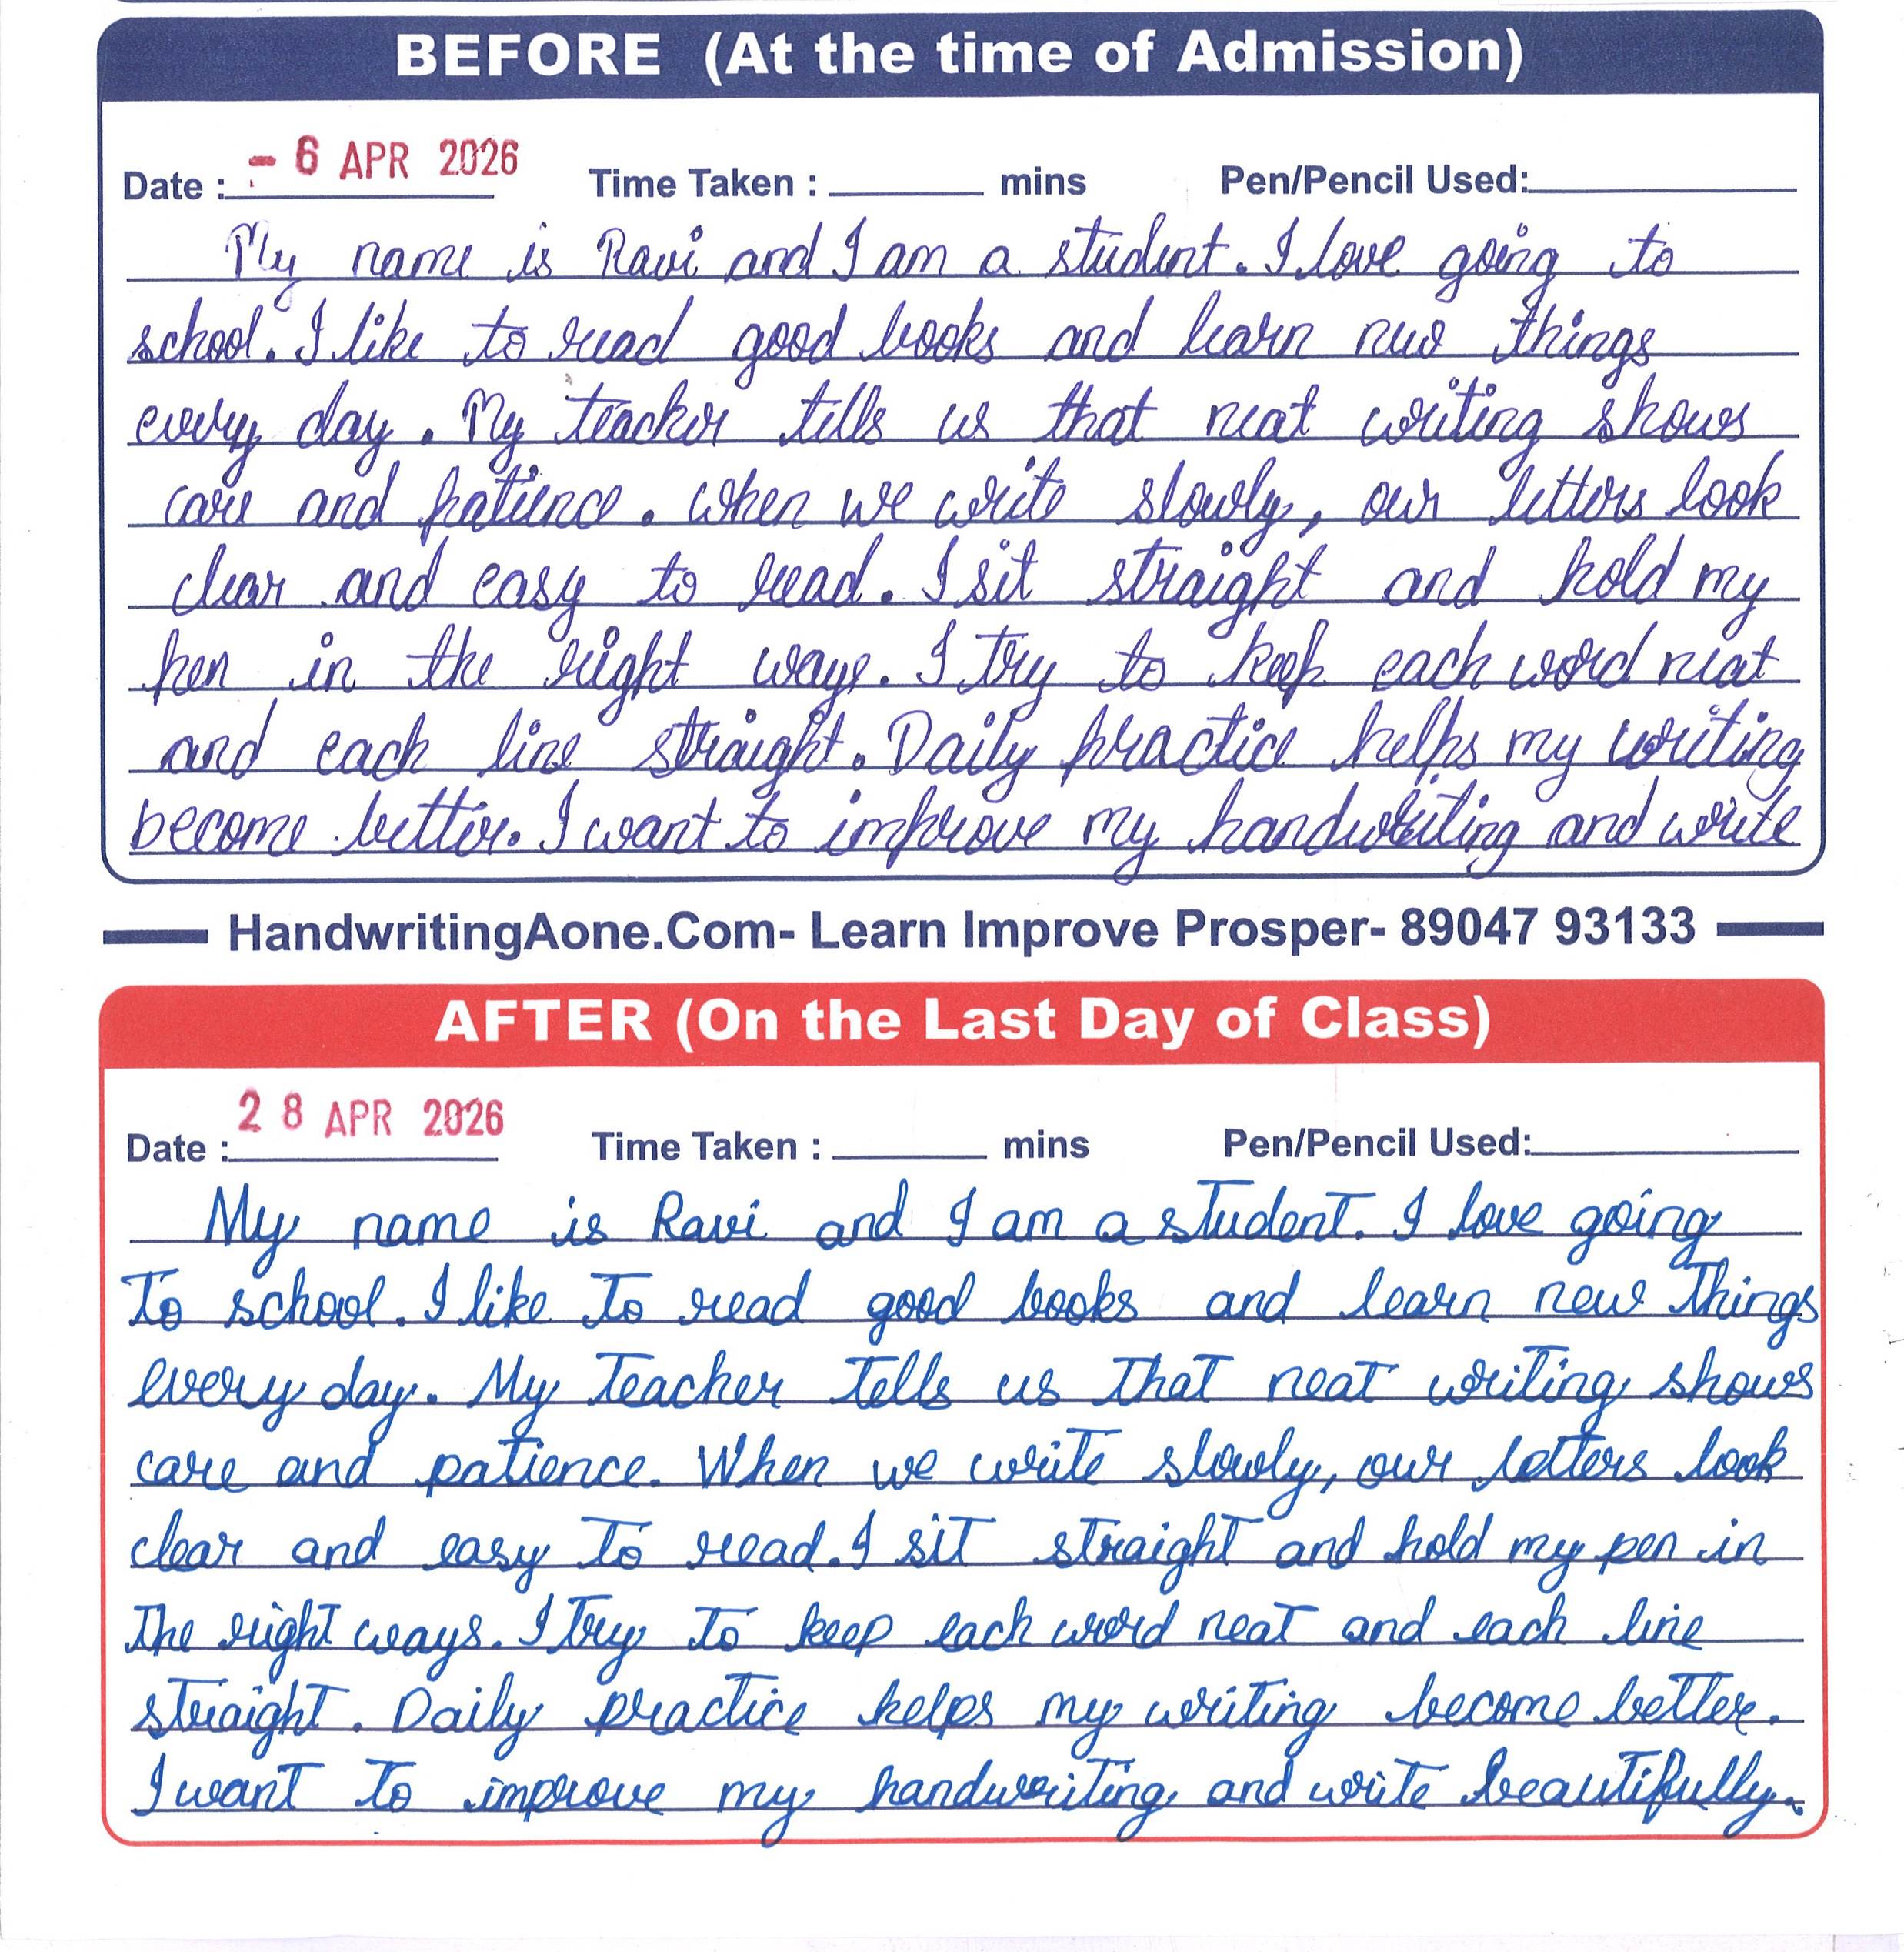 BEFORE (At the time of Admission)
Date : - 6 APR 2026 Time Taken : ______ mins Pen/Pencil Used: ______
My name is Ravi and I am a student. I love going to
school. I like to read good books and learn new things
every day. My teacher tells us that neat writing shows
care and patience. when we write slowly, our letters look
clear and easy to read. I sit straight and hold my
pen in the right ways. I try to keep each word neat
and each line straight. Daily practice helps my writing
become better. I want to improve my handwriting and write
HandwritingAone.Com- Learn Improve Prosper- 89047 93133
AFTER (On the Last Day of Class)
Date : 28 APR 2026 Time Taken : ______ mins Pen/Pencil Used: ______
My name is Ravi and I am a student. I love going
to school. I like to read good books and learn new things
every day. My teacher tells us that neat writing shows
care and patience. When we write slowly, our letters look
clear and easy to read. I sit straight and hold my pen in
the right ways. I try to keep each word neat and each line
straight. Daily practice helps my writing become better.
I want to improve my handwriting and write beautifully.